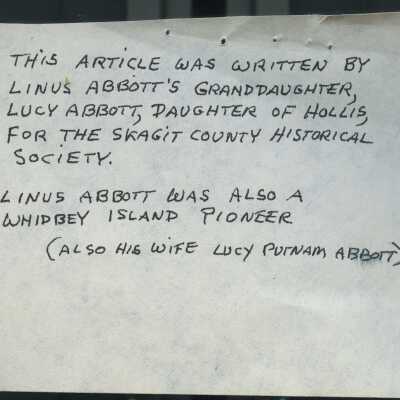 THIS ARTICLE WAS WRITTEN BY
LINUS ABBOTT'S GRANDDAUGHTER,
LUCY ABBOTT, DAUGHTER OF HOLLIS,
FOR THE SKAGIT COUNTY HISTORICAL
SOCIETY.
LINUS ABBOTT WAS ALSO A
WHIDBEY ISLAND PIONEER
(ALSO HIS WIFE LUCY PUTNAM ABBOTT)